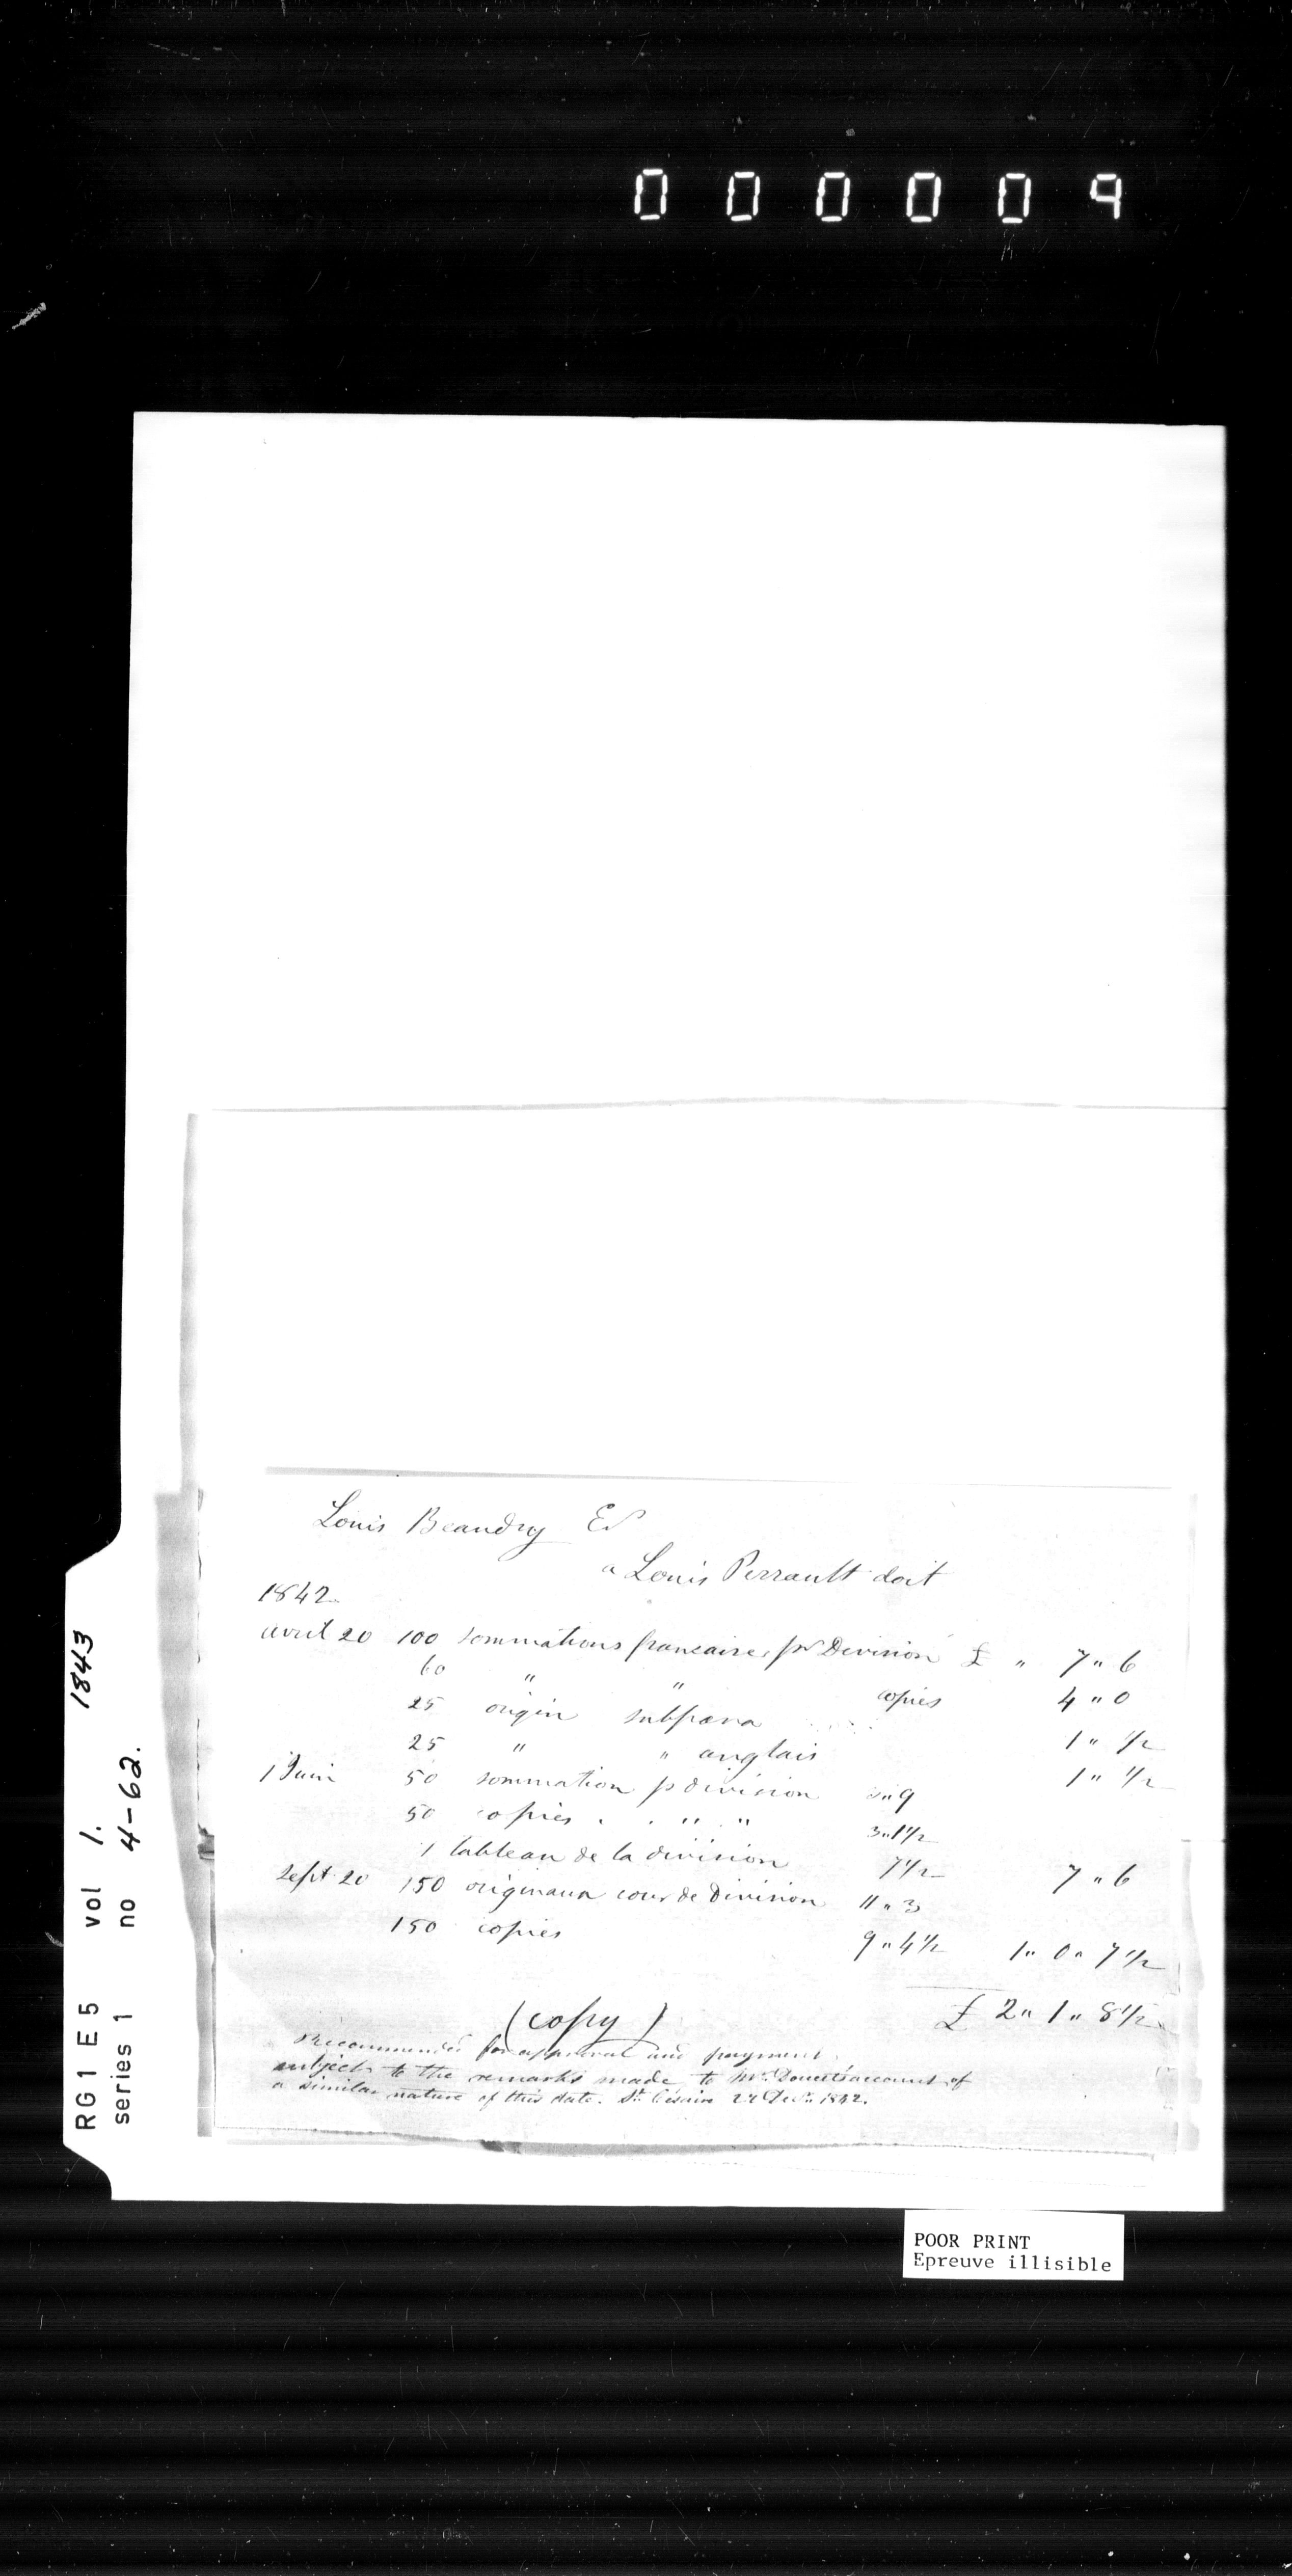 000009
Louis Beaudry Er
a Louis Perrault doit
1842
avril 20 100 sommations francaires pr Division £ " 7 " 6
60 " " copies 4 " 0
25 origin subpœna 1 " 1/2
25 " " anglais 1 " 1/2
1 Juin 50 sommation p division 3 " 9
50 copies . . " . " 3 " 1 1/2
1 tableau de la division 7 1/2 7 " 6
Sept 20 150 originaux cour de Division 11 " 3
150 copies 9 " 4 1/2 1 " 0 " 7 1/2
£ 2 " 1 " 8 1/2
(copy)
Recommended for approval and payment
subject to the remarks made to Mr. account of
a similar nature of this date. St. Césaire Decr. 1842.
RG1 E5 vol 1. 1843
series 1 no 4-62.
POOR PRINT
Epreuve illisible